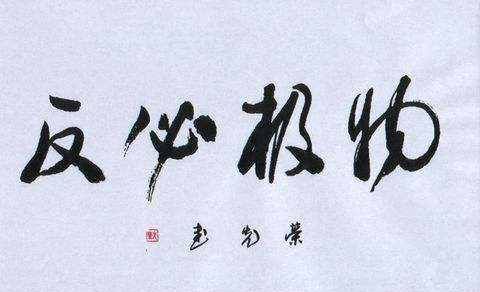 物极必反
荣光书